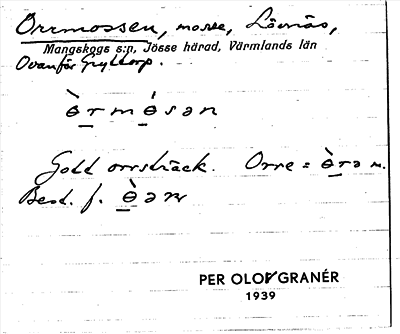 Orrmossen, mosse, Lövnäs,
Mangskogs s:n, Jösse härad, Värmlands län
Ovanför Gryttorp.
ɵ̀rmɵ́sən
Godt orrsträck. Orre = ɵ̀rə m.
Best. f. ɵ̀ən
PER OLOV GRANÉR
1939